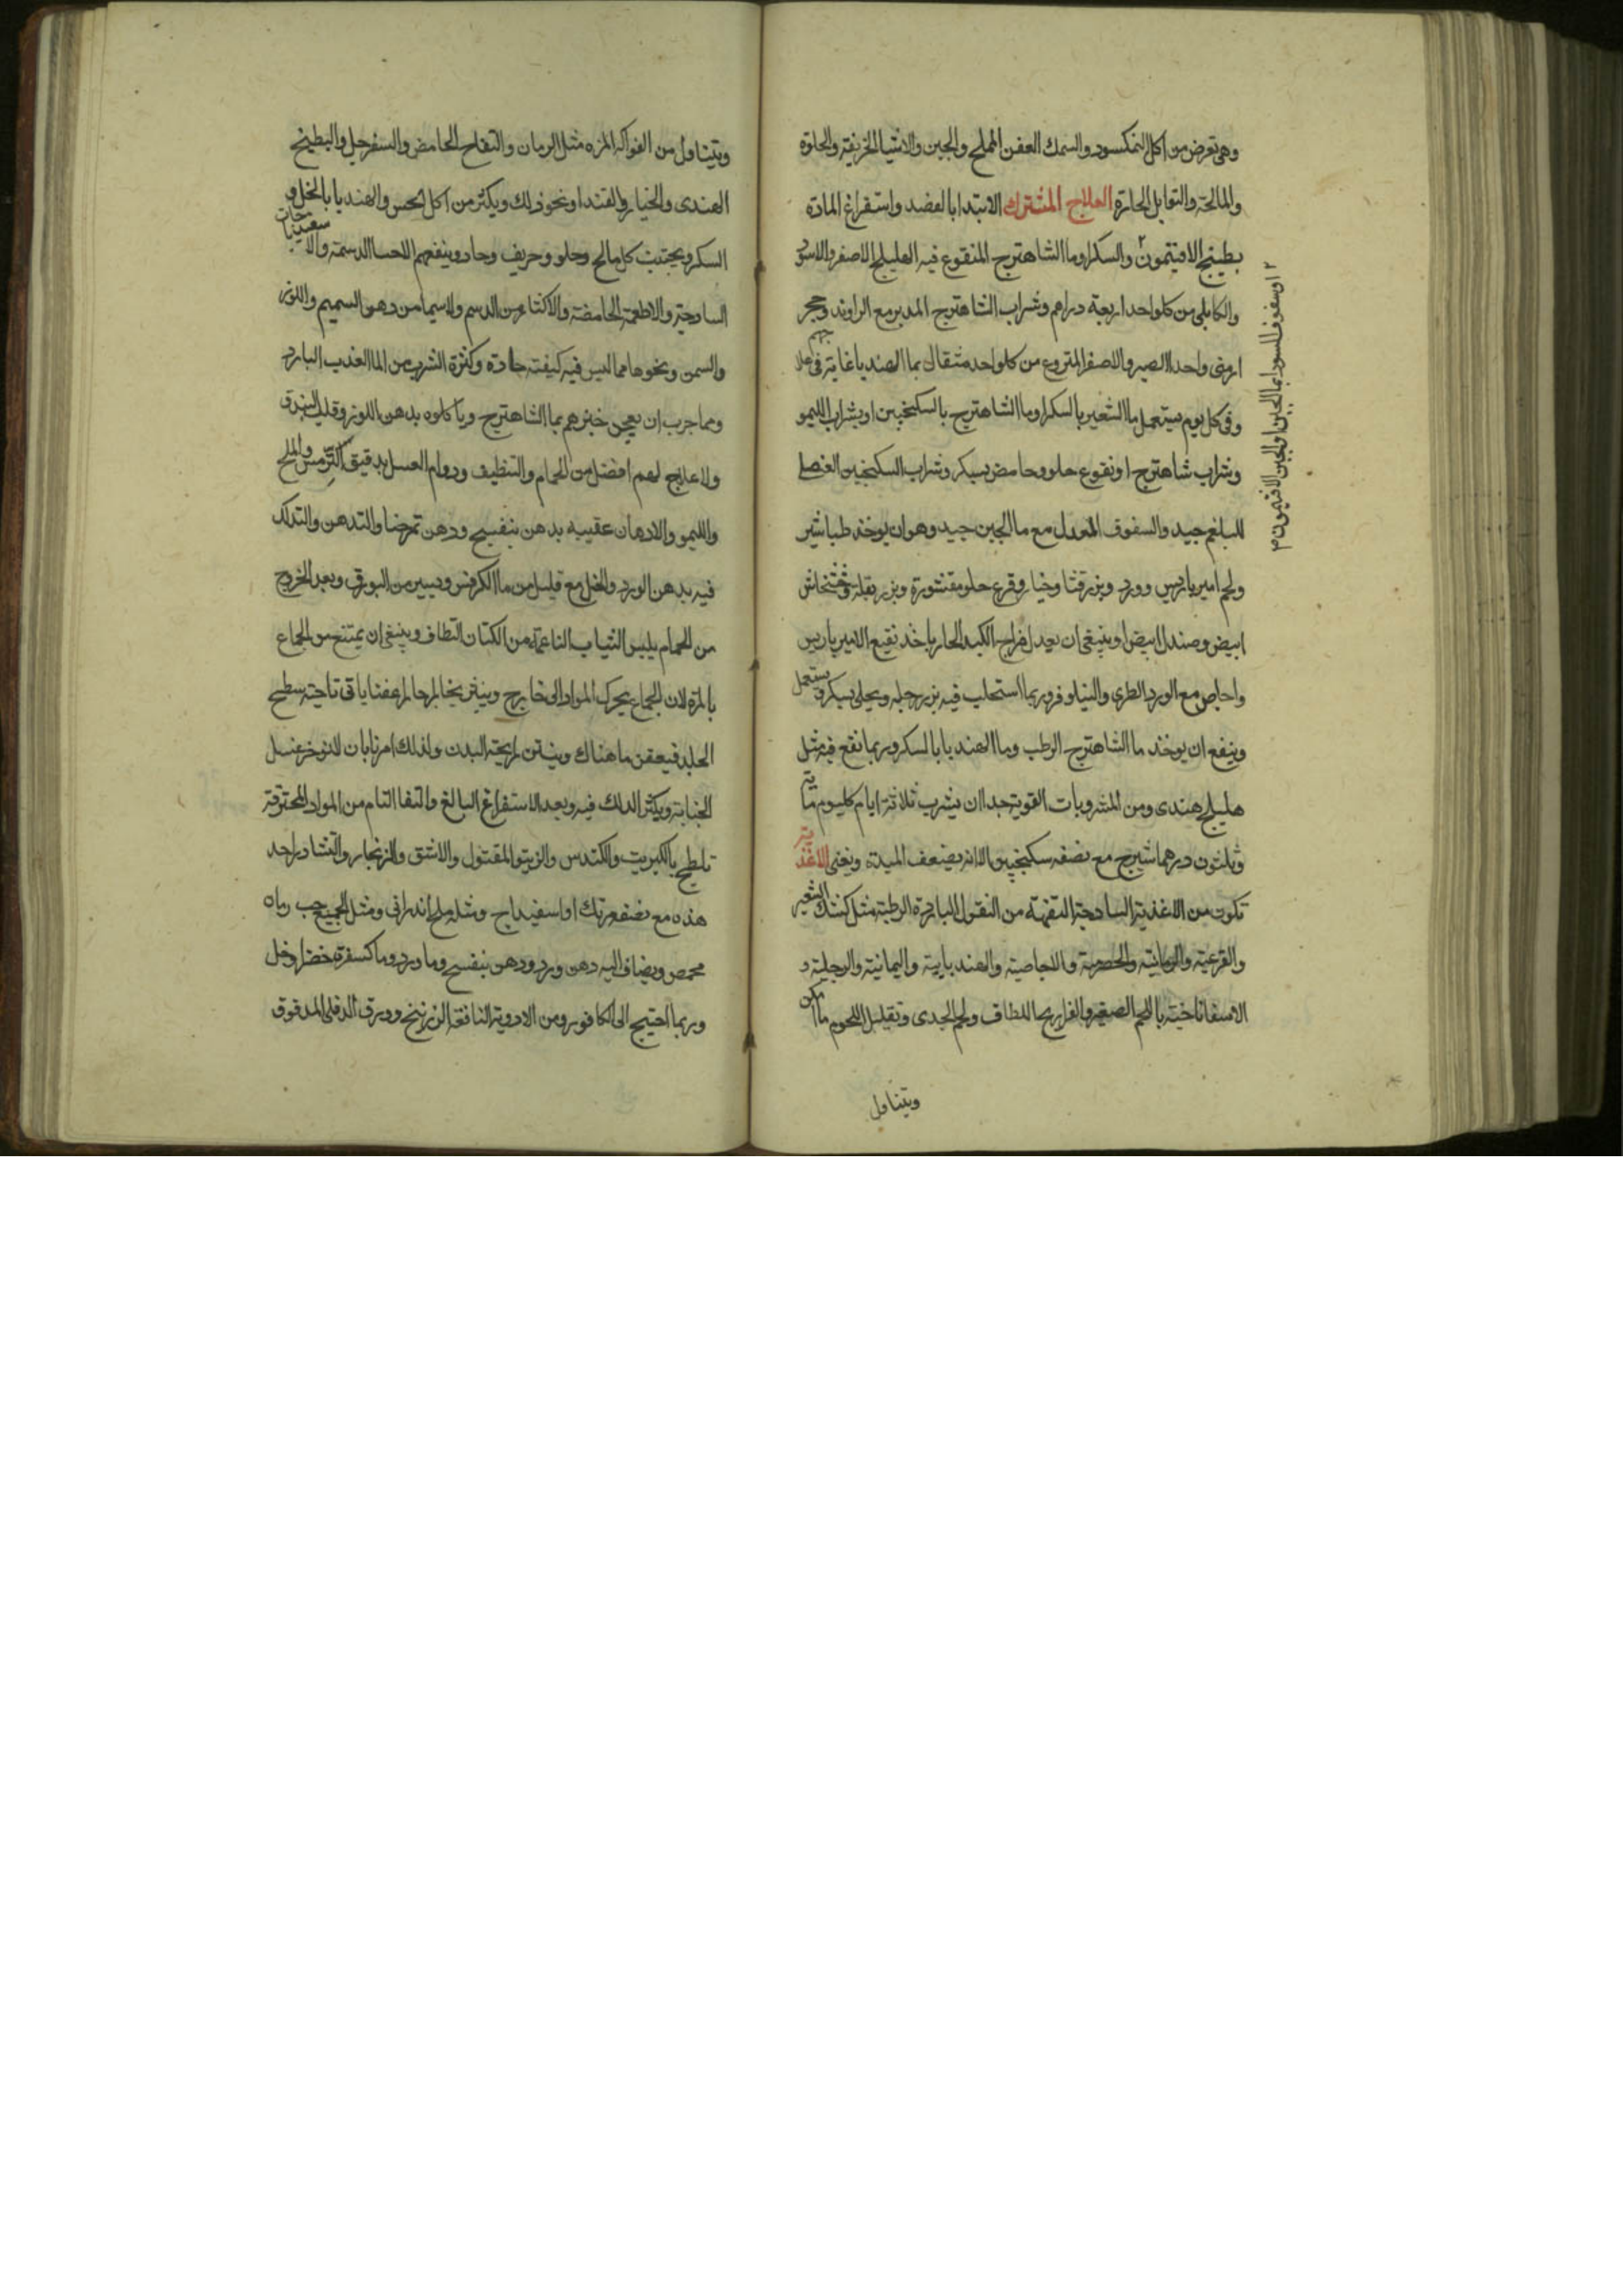 وهى تعرض من اكل النمكسود والسمك العفن المملح والجبن والاشيا الحريفة والحلوة
والمالحة والتوابل الحارة العلاج المشترك الابتدا بالفصد واستفراغ المادة
بطبيخ الافيتمون والسكر او ما الشاهترج المنقوع فيه الهليلج الاصفر والاسود
والكابلى من كل واحد اربعة دراهم وشراب الشاهترج المدبر مع الراوند وحجر
ارمنى واحد الصبر والاصفر المنزوع من كل واحد مثقال بما الهندبا غاية فى علاجهم
وفى كل يوم يستعمل ما الشعير بالسكر او ما الشاهترج بالسكنجبين او بشراب الليمو
وشراب شاهترج او نقوع حلو وحامض بسكر وشراب السكنجبين العنصلى
للبلغم جيد والسفوف المعدل مع ما الجبن جيد وهو ان يوخذ طباشير
ولحم امير باريس وورد وبزر قثا وخيار وقرع حلو مقشورة وبزر بقلة وخشخاش
ابيض وصندل ابيض وينبغى ان يعدل مزاج الكبد الحار باخذ نقيع الامير باريس
واجاص مع الورد الطرى والنيلوفر وربما استحلب فيه بزر رجله ويحلى بسكر ويستعمل
وينفع ان يوخذ ما الشاهترج الرطب وما الهندبا بالسكر وربما نقع فيه مثل
هليلج هندى ومن المشروبات القوية جدا ان يشرب ثلاثة ايام كل يوم ماية
وثلثون درهما شيرج مع نصفه سكنجبين الا انه يضعف المعدة ويغثى الاغذية
تكون من الاغذية الساذجة التفهة من البقول الباردة الرطبة مثل كشك الشعير
والقرعية والرمانية والحصرمية والاجاصية والهندبايية واليمانية والرجلية و
الاسفاناخية باللحم الصغير والفراريج اللطاف ولحم الجدى وتقليل اللحوم ما امكن
ويتناول
٢ او سفوف السودا بما الجبن او الجبن الافتيمونى م
ويتناول من الفواكه المزه مثل الرمان والتفاح الحامض والسفرجل والبطيخ
الهندى والخيار والقثد او نحو ذلك ويكثر من اكل الخس والهندبا بالخل و
السكر ويجتنب كل مالح وحلو وحريف وحاد وينفعهم الاحسا الدسمة والاسفيدباجات
الساذجة والاطعمة الحامضة والاكثار من الدسم ولاسيما من دهن السمسم واللوز
والسمن ونحوها مما ليس فيه كيفية حادة وكثرة الشرب من الما العذب البارد
ومما جرب ان يعجن خبزهم بما الشاهترج وياكلوه بدهن اللوز وقلب البندق
ولا علاج لهم افضل من الحمام والتنظيف ودوام الغسل بدقيق الترمس والملح
والليمو والادهان عقيبه بدهن بنفسج ودهن تمرخا والتدهن والتدلك
فيه بدهن الورد والخل مع قليل من ما الكرفس ويسير من البورق وبعد الخروج
من الحمام يلبس الثياب الناعمة من الكتان النظاف وينبغى ان يمتنع من الجماع
بالمرة لان الجماع يحرك المواد الى خارج ويثير بخارا حارا عفنا ياتى ناحية سطح
الجلد فيعفن ما هناك وينتن رايحة البدن ولذلك امرنا بان لا يوخر غسل
الجنابة ويكثر الدلك فيه وبعد الاستفراغ البالغ والنقا التام من المواد المحترقة
تلطخ بالكبريت والكندس والزيبق المقتول والاشق والزنجار والنشادر احد
هذه مع نصفه مرتك او اسفيداج ومثله ملح اندرانى ومثل الجميع حب رمان
محمص ويضاف اليه دهن ورد ودهن بنفسج وما ورد وما كسفرة خضرا وخل
وربما احتيج الى الكافور ومن الادوية النافعة الزرنيخ وورق الدفلى المدقوق